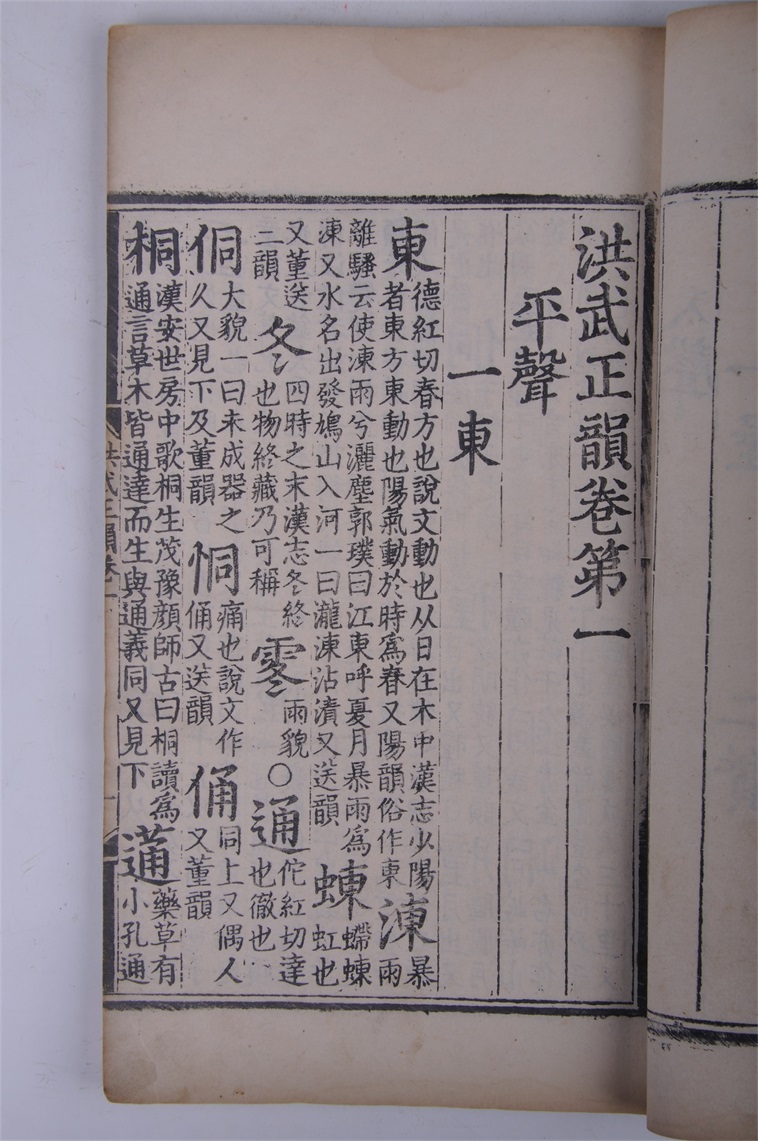 洪武正韻卷第一
平聲
一東
東德紅切春方也說文動也从日在木中漢志少陽者東方東動也陽氣動於時爲春又陽韻俗作東涷暴雨
離騷云使涷雨兮灑塵郭璞曰江東呼夏月暴雨爲涷又水名出發鳩山入河一曰瀧涷沾漬又送韻蝀螮蝀虹也
又董送三韻冬四時之末漢志冬終也物終藏乃可稱䨦雨貌○通佗紅切達也徹也
侗大貌一曰未成器之久又見下及董韻恫痛也說文作俑又送韻俑同上又偶人又董韻
桐漢安世房中歌桐生茂豫顏師古曰桐讀爲通言草木皆通達而生與通義同又見下蓪藥草有小孔通
洪武正韻卷一